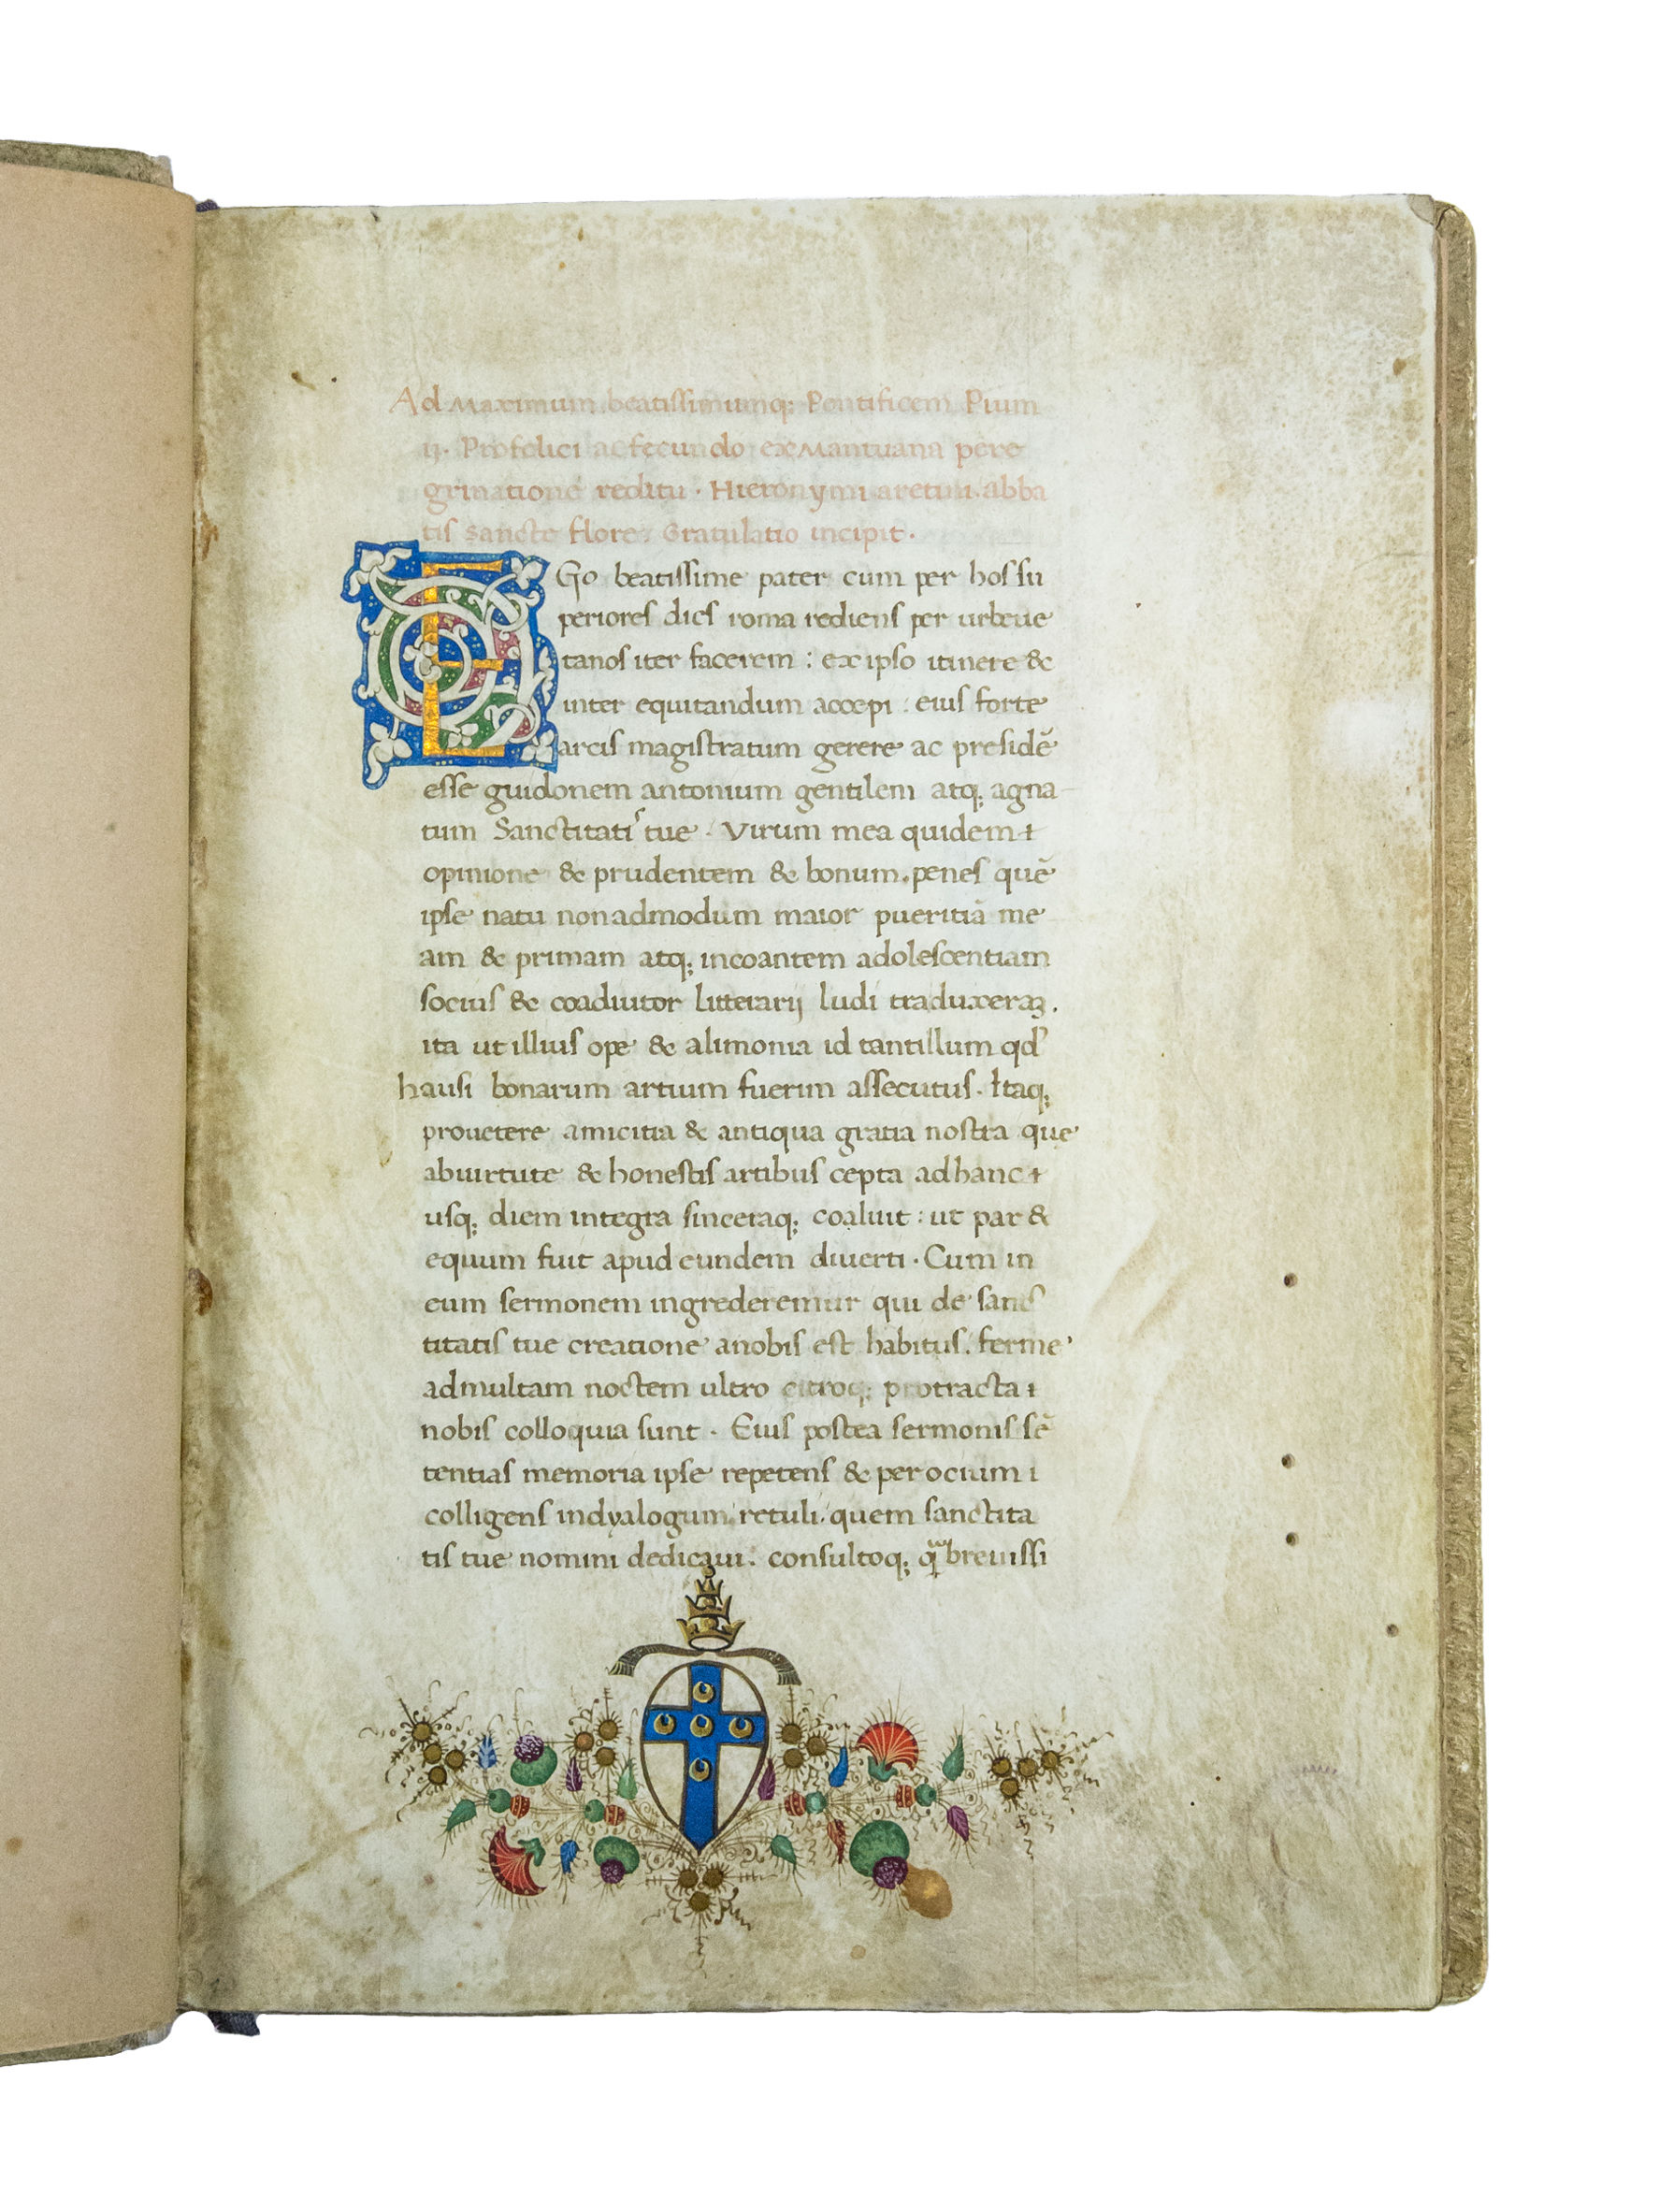 Ad Maximum beatissimumq; Pontificem Pium
ij. Pro felici ac fecundo ex Mantuana pere
grinatione reditu · Hieronymi aretini. abba
tis sancte flore. Gratulatio incipit ·
EGo beatissime pater cum per hos su
periores dies roma rediens per urbeue
tanos iter facerem : ex ipso itinere &
inter equitandum accepi : eius forte
arcis magistratum gerere ac presidē
esse guidonem antonium gentilem atq; agna
tum Sanctitatis tue · Virum mea quidem
opinione & prudentem & bonum. penes quē
ipse natu non admodum maior pueritiā me
am & primam atq; incoantem adolescentiam
socius & coadiutor litterarij ludi traduxeraꝫ.
ita ut illius ope & alimonia id tantillum qđ
hausi bonarum artium fuerim assecutus. Itaq;
prouetere amicitia & antiqua gratia nostra que
abuirtute & honestis artibus cepta adhanc
usq; diem integra sinceraq; coaluit : ut par &
equum fuit apud eundem diuerti · Cum in
eum sermonem ingrederemur qui de sanc
titatis tue creatione anobis est habitus. ferme
admultam noctem ultro citroq; protracta
nobis colloquia sunt · Eius postea sermonis sē
tentias memoria ipse repetens & per ocium
colligens indyalogum. retuli. quem sanctita
tis tue nomini dedicaui : consultoq; q̃breuissi